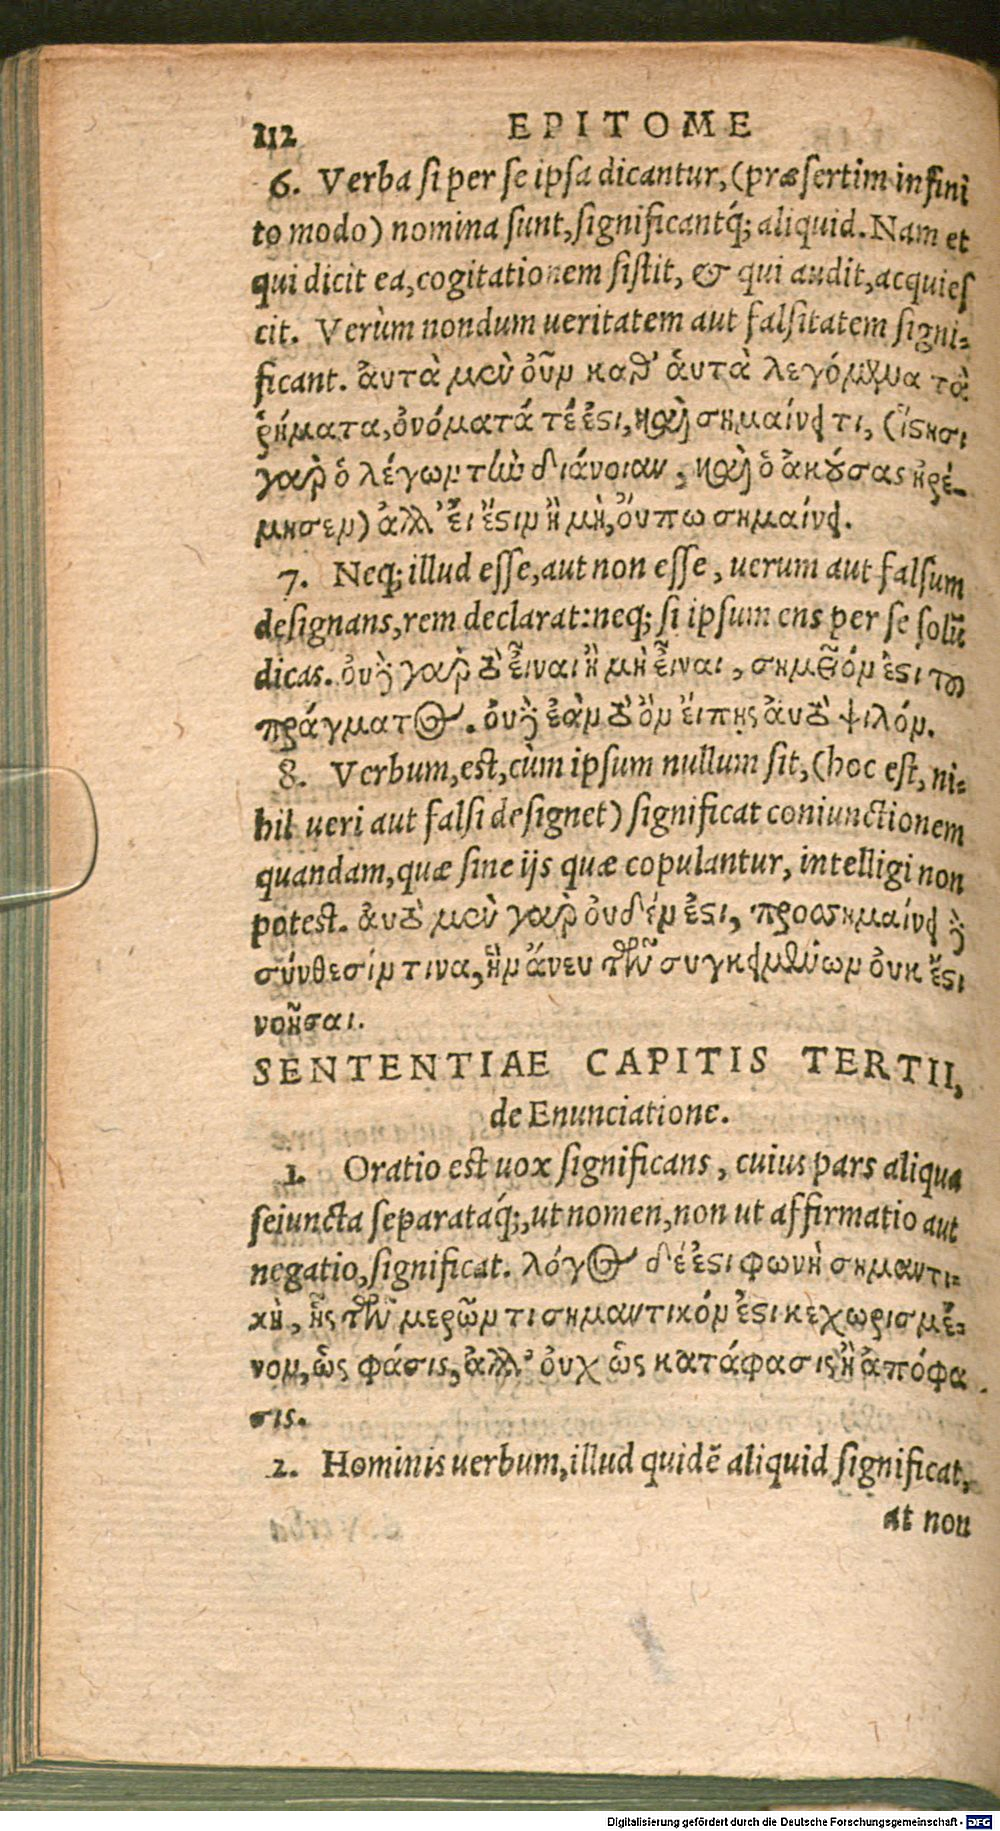 112 EPITOME
6. Verba si per se ipsa dicantur, (præsertim infini
to modo) nomina sunt, significantq́; aliquid. Nam et
qui dicit ea, cogitationem sistit, & qui audit, acquies
cit. Verùm nondum ueritatem aut falsitatem signi-
ficant. ἀυτὰ μὲν οὖν καθ’ ἁυτὰ λεγόμενα τὰ
ῥήματα, ὀνόματά τέ ἐστι, καὶ σημαίνει τι, (ἵστησι
γὰρ ὁ λέγων τὴν διάνοιαν, καὶ ὁ ἀκούσας ἠρέ-
μησεν) ἀλλ’ ἐι ἔστιν ἢ μὴ, ὄυπω σημαίνει.
7. Neq; illud esse, aut non esse, uerum aut falsum
designans, rem declarat: neq; si ipsum ens per se solũ
dicas. ὀυδὲ γὰρ τὸ εἶναι ἢ μὴ εἶναι, σημεῖόν ἐστι τοῦ
πράγματος. ὀυδὲ ἐὰν τὸ ὂν ἔιπῃς ἀυτὸ ψιλόν.
8. Verbum, est, cùm ipsum nullum sit, (hoc est, ni-
hil ueri aut falsi designet) significat coniunctionem
quandam, quæ sine ijs quæ copulantur, intelligi non
potest. ἀυτὸ μὲν γὰρ ὀυδέν ἐστι, προσσημαίνει δὲ
σύνθεσίν τινα, ἣν ἄνευ τῶν συγκειμένων ὀυκ ἔστι
νοῆσαι.
SENTENTIAE CAPITIS TERTII,
de Enunciatione.
1. Oratio est uox significans, cuius pars aliqua
seiuncta separataq́;, ut nomen, non ut affirmatio aut
negatio, significat. λόγος δέ ἐστι φωνὴ σημαντι-
κὴ, ἧς τῶν μερῶν τι σημαντικόν ἐστι κεχωρισμέ-
νον, ὡς φάσις, ἀλλ’ ὀυχ ὡς κατάφασις ἢ ἀπόφα
σις.
2. Hominis uerbum, illud quidẽ aliquid significat,
at non
Digitalisierung gefördert durch die Deutsche Forschungsgemeinschaft - DFG